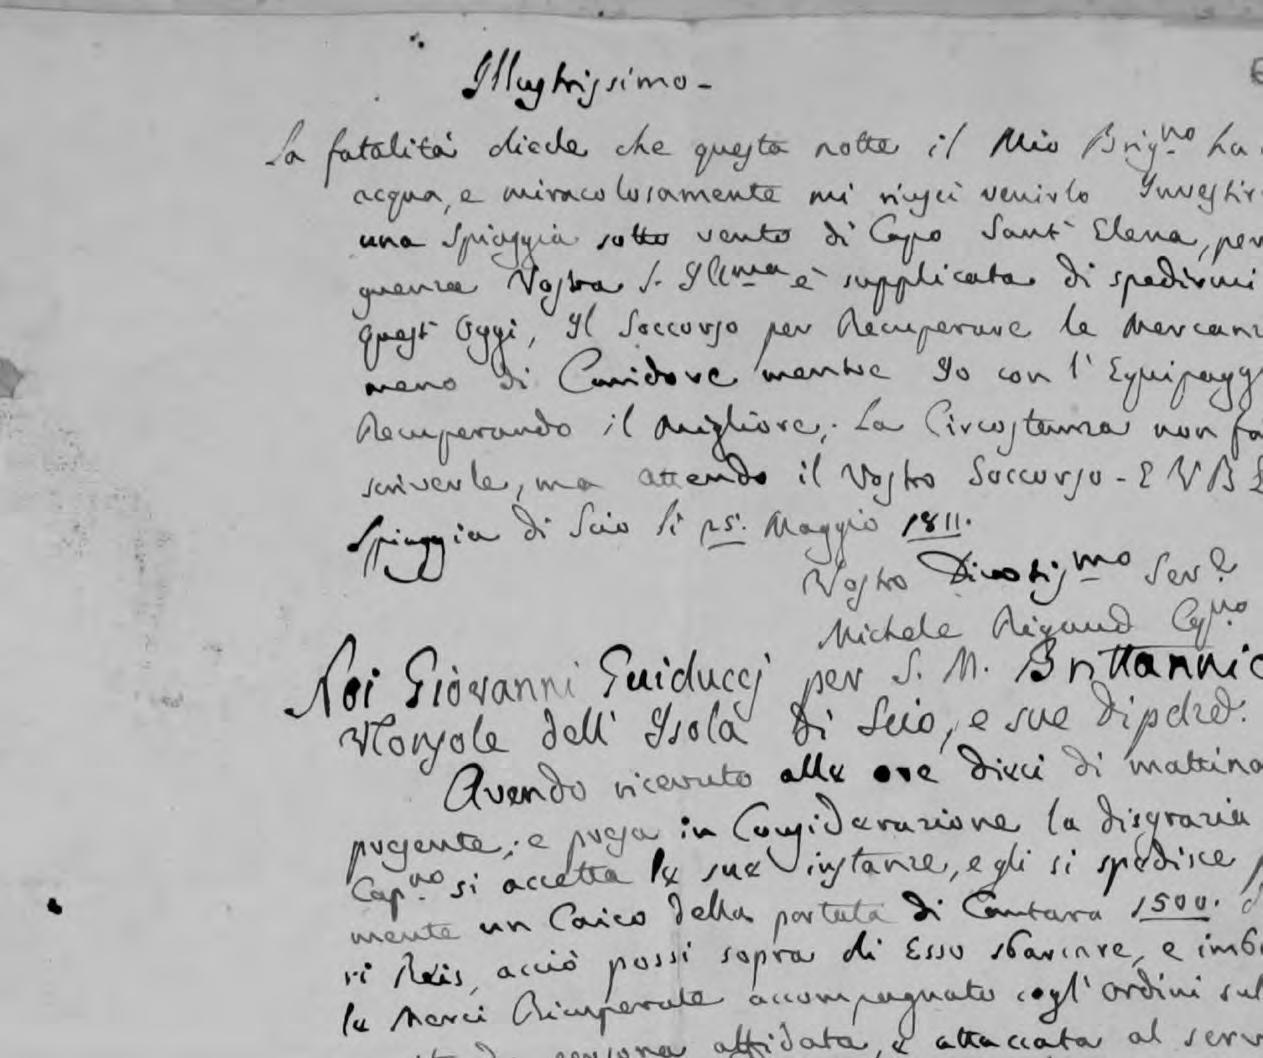 Illustrissimo -
La fatalità diede che questa notte il Mio Brig.no ha
acqua, e miracolosamente mi riuscì venirlo Investir
una Spiaggia sotto vento di Capo Sant' Elena, per
guenza Vostra S. Illma è supplicata di spedirmi
quest' Oggi, Il Soccorso per Recuperare le Mercan
meno di Corridore mentre Io con l' Equipagg
Recuperando il migliore, La Circostanza non fa
scriverle, ma attendo il Vostro Soccorso - E V B
Spiaggia di Scio li 25. Maggio 1811.
Vostro Divotis.mo Ser.e
Michele Rigaud Cap.no
Noi Giovanni Guiducci per S. M. Brittannic
Console dell' Isola di Scio, e sue dip
Avendo ricevuto alle ore dieci di mattina
presente, e presa in Considerazione la disgrazia
Cap.no si accetta le sue instanze, e gli si spedisce
mente un Caico della portata di Cantara 1500.
ri Reis, acciò possi sopra di Esso sbarcare, e imb
le Merci Ricuperate accompagnato cogl' ordini sul
persona affidata, e attaccata al serv